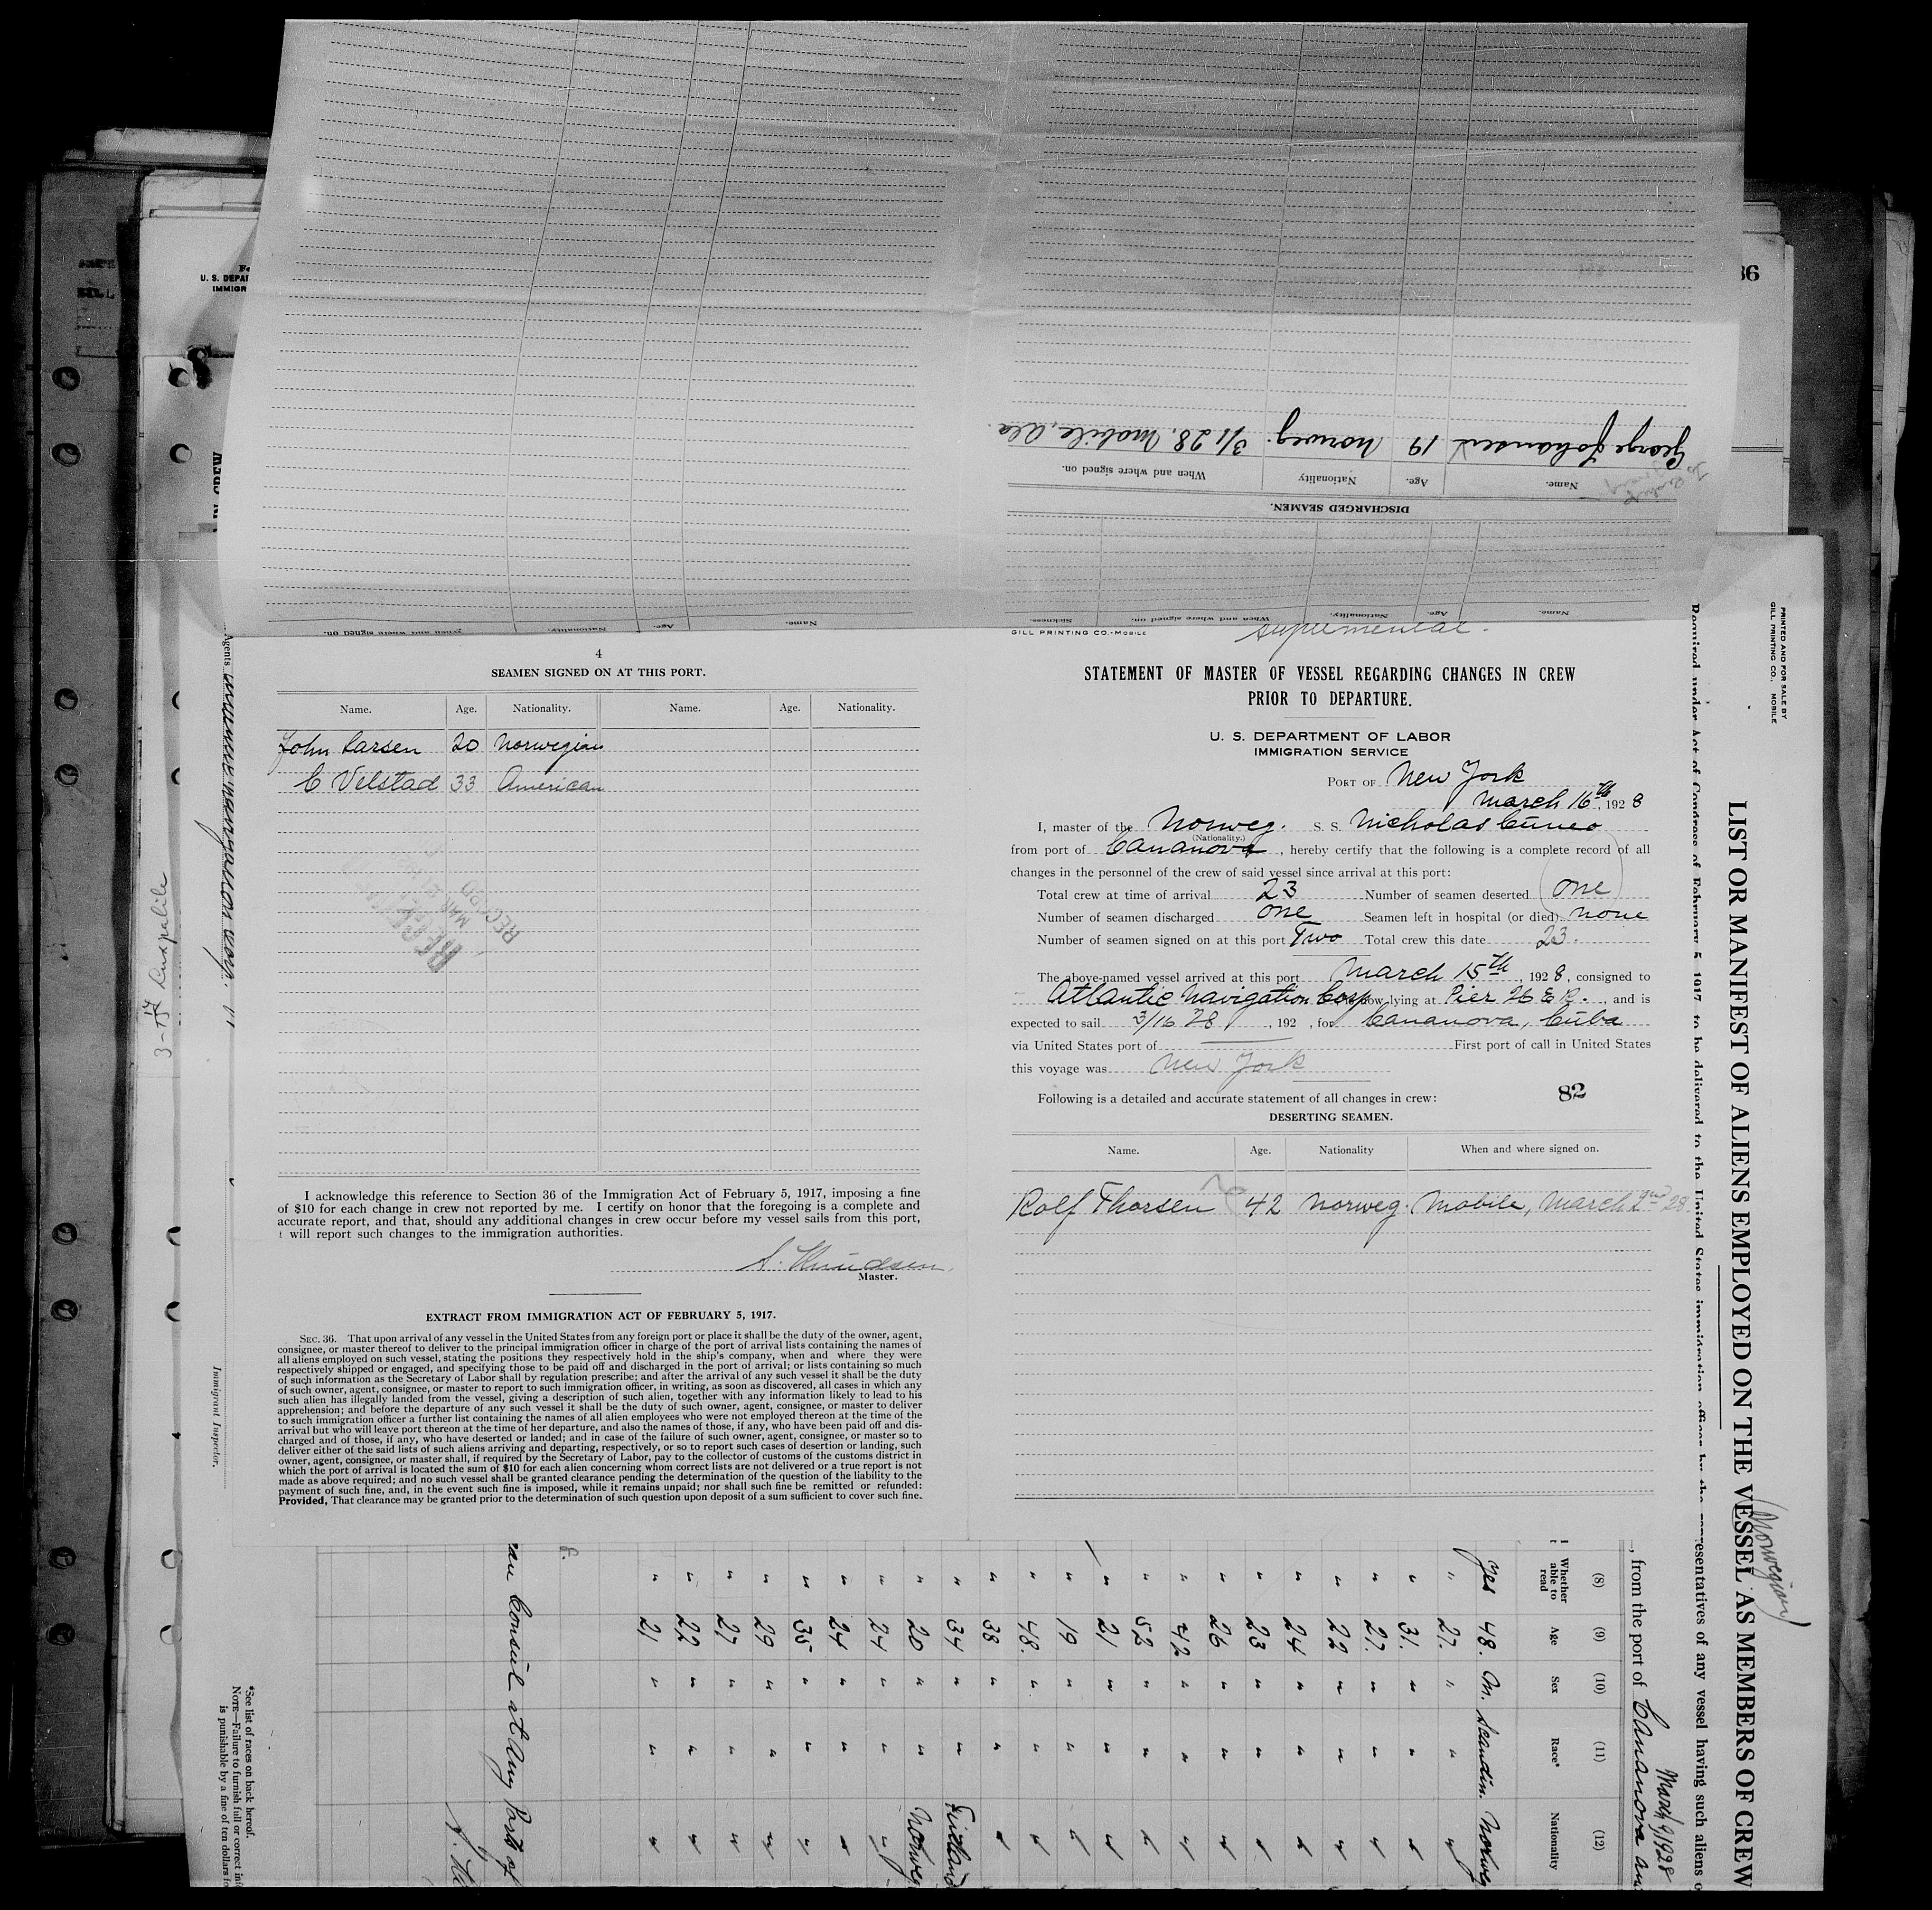 George Johansen 19 Norweg. 3/1 28, Mobile, Ala.
Name. Age. Nationality When and where signed on.
DISCHARGED SEAMEN.
Name. Age. Nationality. When and where signed on. Sickness.
Name. Age. Nationality. When and where signed on.
4
SEAMEN SIGNED ON AT THIS PORT.
Name. Age. Nationality. Name. Age. Nationality.
John Larsen 20 Norwegian
C Velstad 33 American
I acknowledge this reference to Section 36 of the Immigration Act of February 5, 1917, imposing a fine
of $10 for each change in crew not reported by me. I certify on honor that the foregoing is a complete and
accurate report, and that, should any additional changes in crew occur before my vessel sails from this port,
I will report such changes to the immigration authorities.
S. Knudsen
Master.
EXTRACT FROM IMMIGRATION ACT OF FEBRUARY 5, 1917.
SEC. 36. That upon arrival of any vessel in the United States from any foreign port or place it shall be the duty of the owner, agent,
consignee, or master thereof to deliver to the principal immigration officer in charge of the port of arrival lists containing the names of
all aliens employed on such vessel, stating the positions they respectively hold in the ship's company, when and where they were
respectively shipped or engaged, and specifying those to be paid off and discharged in the port of arrival; or lists containing so much
of such information as the Secretary of Labor shall by regulation prescribe; and after the arrival of any such vessel it shall be the duty
of such owner, agent, consignee, or master to report to such immigration officer, in writing, as soon as discovered, all cases in which any
such alien has illegally landed from the vessel, giving a description of such alien, together with any information likely to lead to his
apprehension; and before the departure of any such vessel it shall be the duty of such owner, agent, consignee, or master to deliver
to such immigration officer a further list containing the names of all alien employees who were not employed thereon at the time of the
arrival but who will leave port thereon at the time of her departure, and also the names of those, if any, who have been paid off and dis-
charged and of those, if any, who have deserted or landed; and in case of the failure of such owner, agent, consignee, or master so to
deliver either of the said lists of such aliens arriving and departing, respectively, or so to report such cases of desertion or landing, such
owner, agent, consignee, or master shall, if required by the Secretary of Labor, pay to the collector of customs of the customs district in
which the port of arrival is located the sum of $10 for each alien concerning whom correct lists are not delivered or a true report is not
made as above required; and no such vessel shall be granted clearance pending the determination of the question of the liability to the
payment of such fine, and, in the event such fine is imposed, while it remains unpaid; nor shall such fine be remitted or refunded:
Provided, That clearance may be granted prior to the determination of such question upon deposit of a sum sufficient to cover such fine.
GILL PRINTING CO.-MOBILE
Suplemental.
STATEMENT OF MASTER OF VESSEL REGARDING CHANGES IN CREW
PRIOR TO DEPARTURE.
U. S. DEPARTMENT OF LABOR
IMMIGRATION SERVICE
PORT OF New York
March 16th, 1928
I, master of the Norweg. S. S. Nicholas Cuneo
(Nationality.)
from port of Cananova, hereby certify that the following is a complete record of all
changes in the personnel of the crew of said vessel since arrival at this port:
Total crew at time of arrival 23 Number of seamen deserted one
Number of seamen discharged one Seamen left in hospital (or died) none
Number of seamen signed on at this port Two Total crew this date 23.
The above-named vessel arrived at this port March 15th, 1928, consigned to
Atlantic Navigation Corp now lying at Pier 26 E R., and is
expected to sail 3/16 28, 192 , for Cananova, Cuba
via United States port of First port of call in United States
this voyage was New York
82
Following is a detailed and accurate statement of all changes in crew:
DESERTING SEAMEN.
Name. Age. Nationality When and where signed on.
Rolf Thorsen 42 Norweg. Mobile, March 2nd 28.
LIST OR MANIFEST OF ALIENS EMPLOYED ON THE VESSEL AS MEMBERS OF CREW
(Norwegian)
Required under Act of Congress of February 5, 1917, to be delivered to the United States immigration officer by the representatives of any vessel having such aliens
PRINTED AND FOR SALE BY
GILL PRINTING CO., MOBILE
March 9/1928
, from the port of Cananova
(8) (9) (10) (11) (12)
Whether able to read Age Sex Race* Nationality
yes 48. M. Scandin. Norweg
" 27. " " "
" 31. " " "
" 27. " " "
" 22 " " "
" 24 " " "
" 23 " " "
" 26 " " "
" 42 " " "
" 52 " " "
" 21 " " "
" 19 " " "
" 48. " " "
" 38 " " "
" 34 " " Finland
" 20 " " Norweg
" 24 " " "
" 24 " " "
" 35 " " "
" 29 " " "
" 27 " " "
" 22 " " "
" 21 " " "
Consul at Any Port of
*See list of races on back hereof.
NOTE—Failure to furnish full or correct
is punishable by a fine of ten dollars
Immigrant Inspector.
Agents
U. S. DEPA
IMMIGR
36